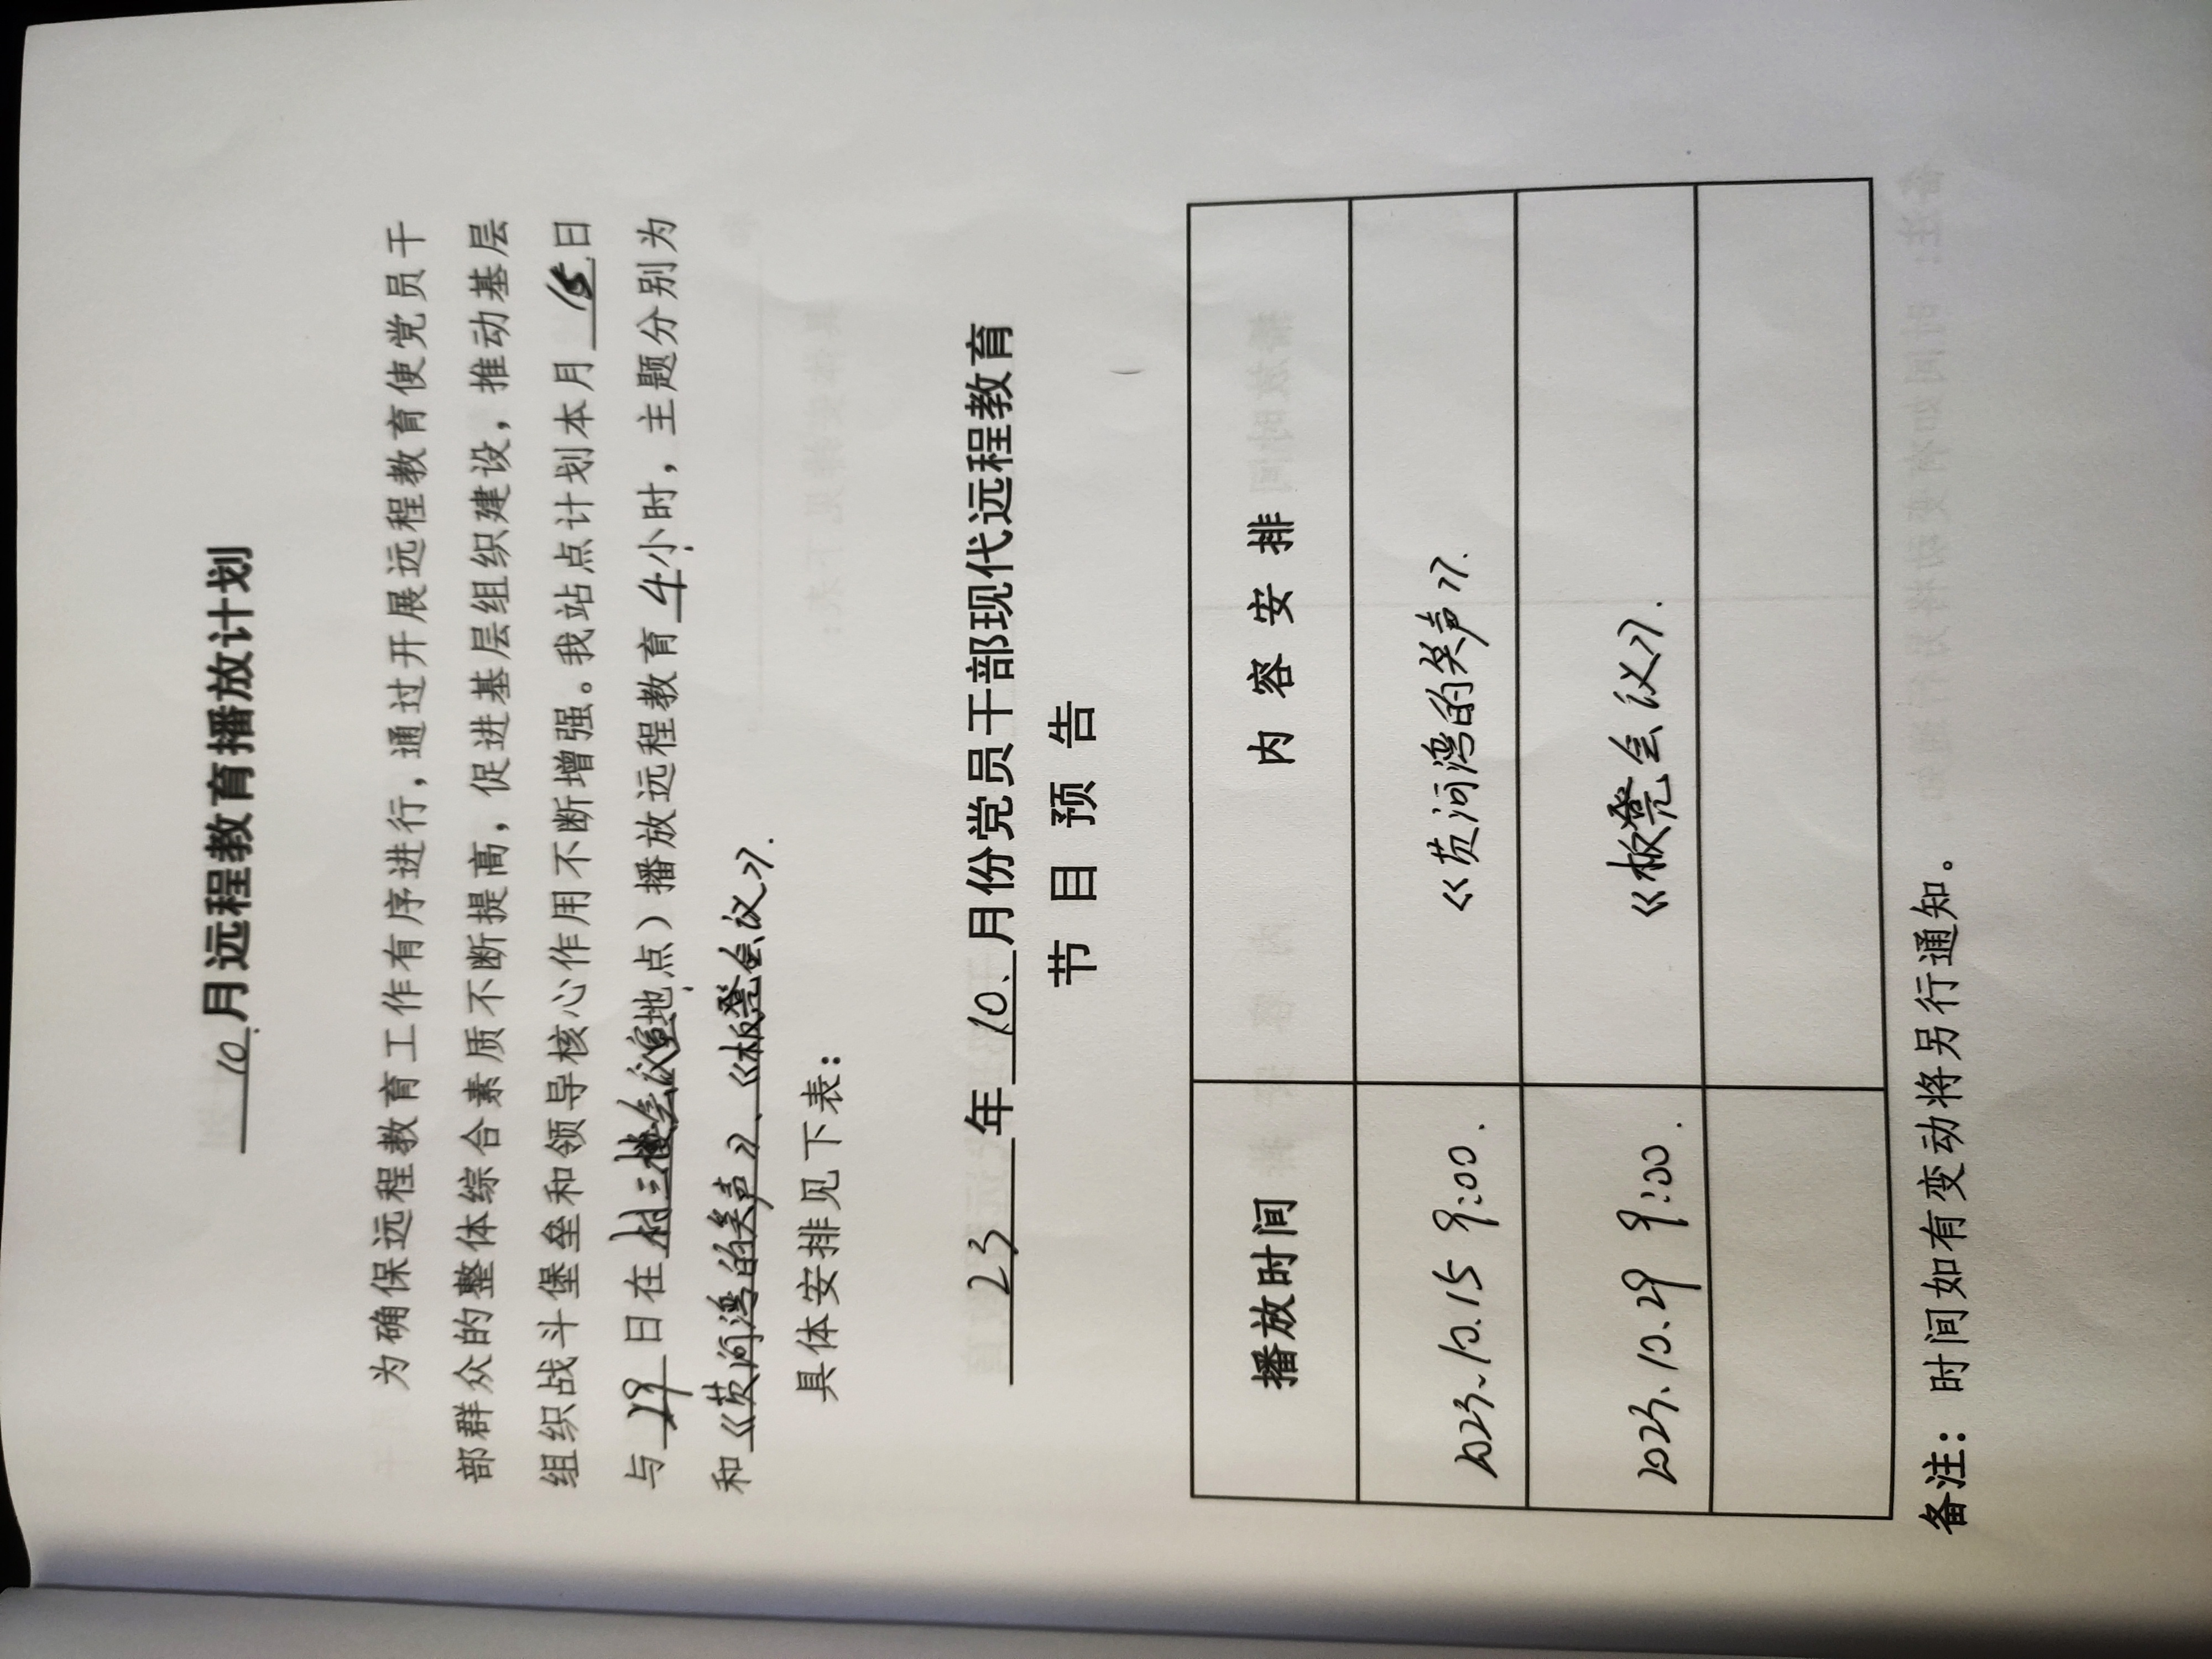 10月远程教育播放计划
为确保远程教育工作有序进行，通过开展远程教育使党员干
部群众的整体综合素质不断提高，促进基层组织建设，推动基层
组织战斗堡垒和领导核心作用不断增强。我站点计划本月15日
与29日在村三楼会议室（地点）播放远程教育4小时，主题分别为
和《黄河湾的笑声》、《板凳会议》.
具体安排见下表：
23年10、月份党员干部现代远程教育
节目预告
播放时间 内容安排
2023.10.15 9:00. 《黄河湾的笑声》.
2023.10.29 9:00. 《板凳会议》.
备注：时间如有变动将另行通知。